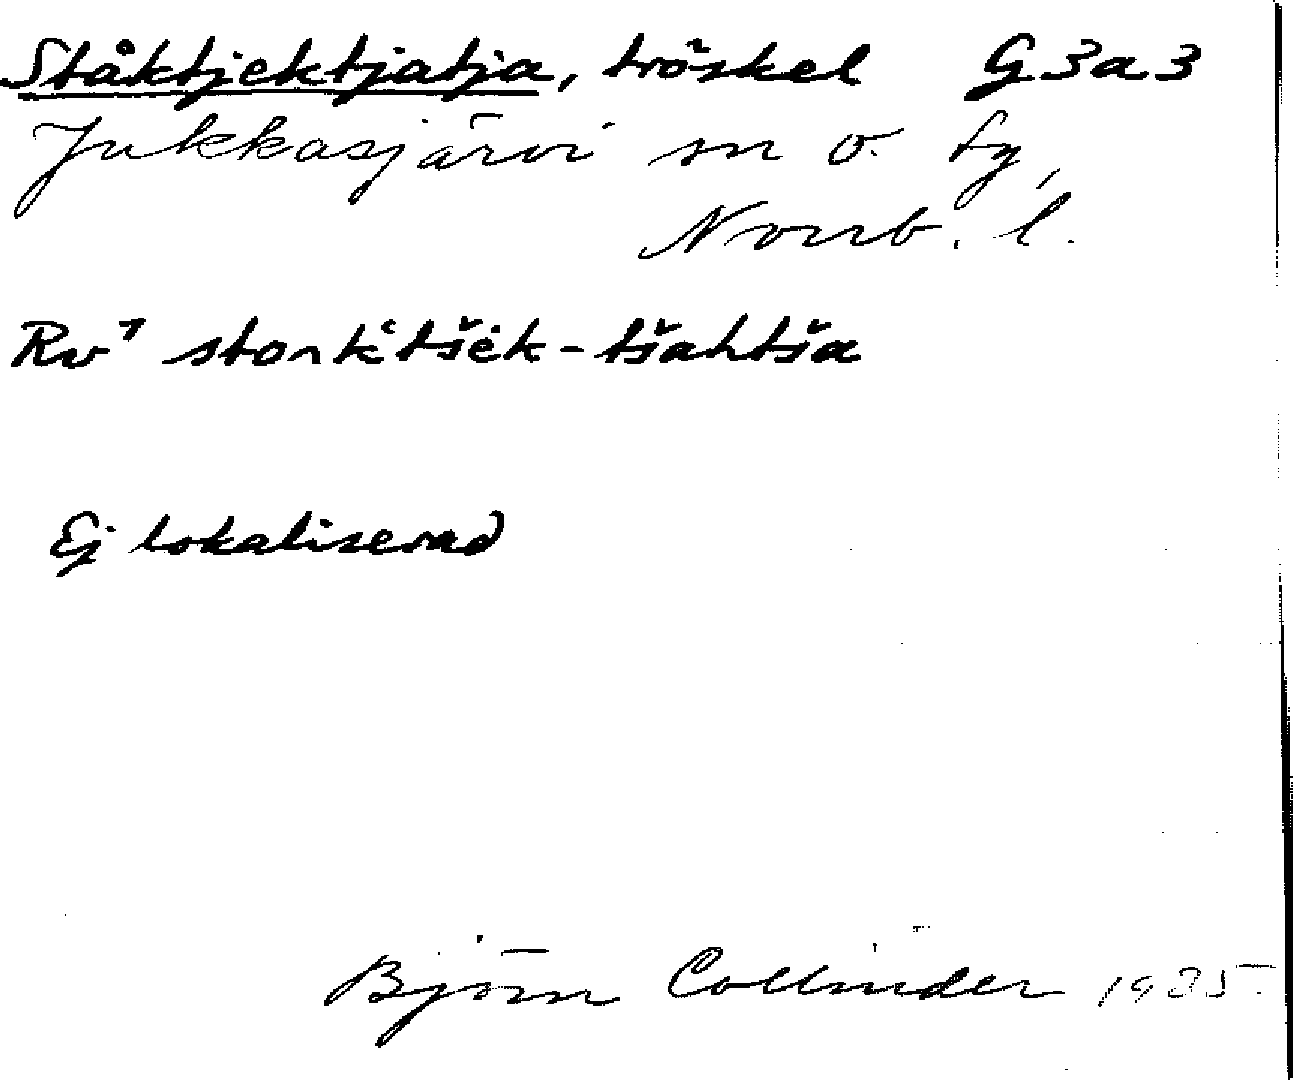 Ståktjektjatja, tröskel G3a3
Jukkasjärvi sn o. by,
Norrb. l.
Rv¹
Ej lokaliserad
Björn Collinder 1935.